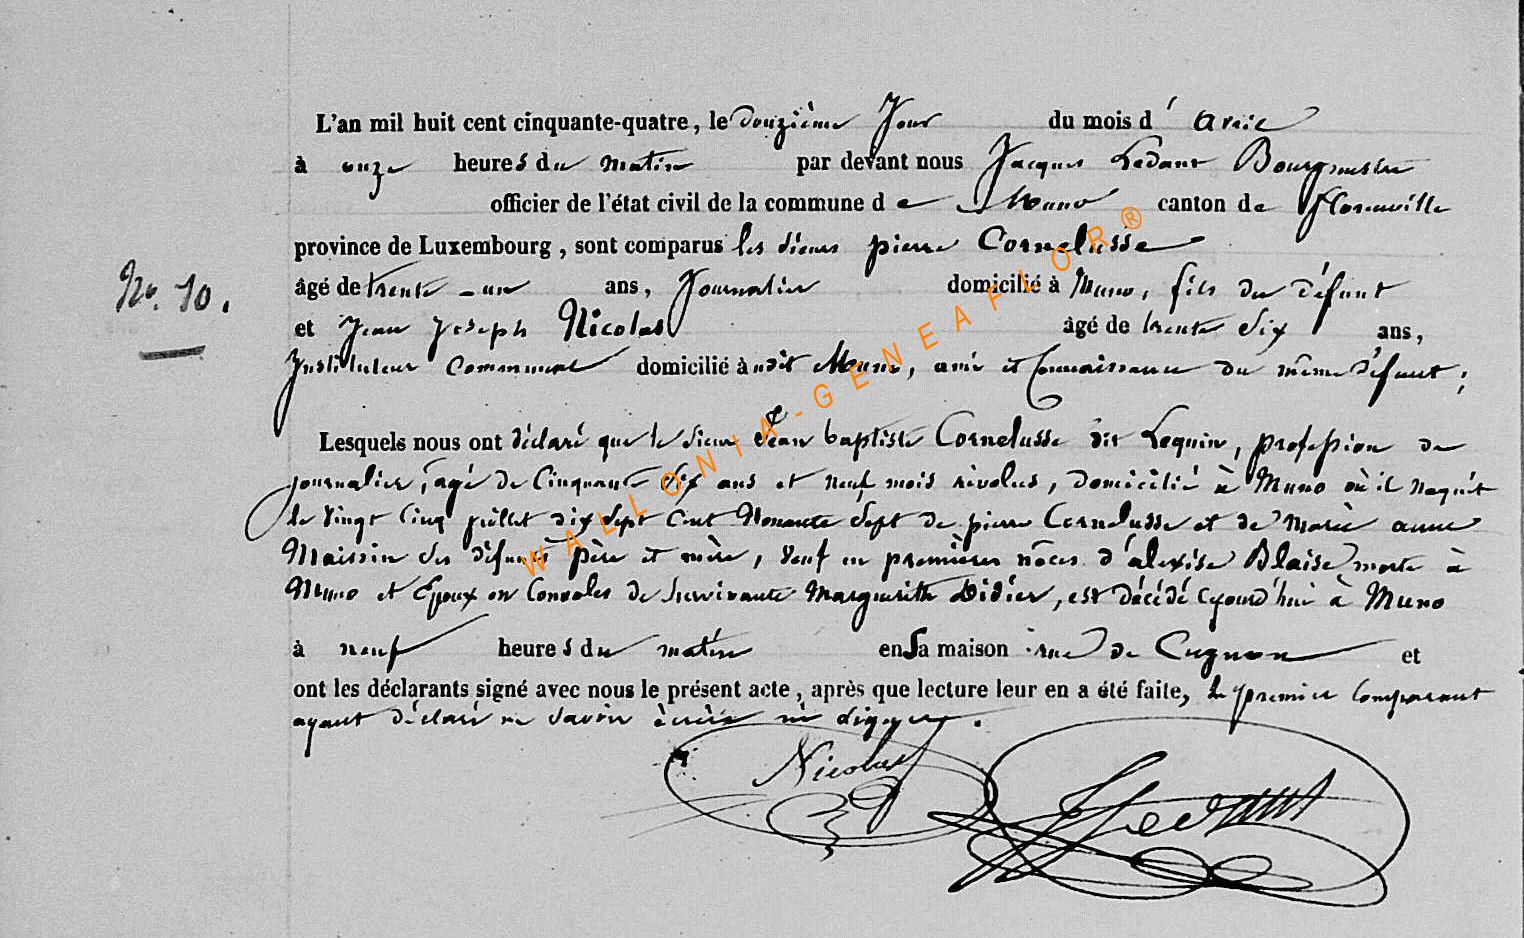 L'an mil huit cent cinquante-quatre, le douzième Jour du mois d' avril
à onze heures du matin par devant nous Jacques Ledant Bourgmestre
officier de l'état civil de la commune de Muno canton de Florenville
province de Luxembourg, sont comparus les sieurs pierre Cornelusse
No. 10.
âgé de trente-un ans, Journalier domicilié à Muno, fils du défunt
et Jean Joseph Nicolas âgé de trente six ans,
Instituteur Communal domicilié audit Muno, ami et Connaissance du même défunt;
Lesquels nous ont déclaré que le sieur Jean baptiste Cornelusse dit Lequin, profession de
journalier, âgé de Cinquante six ans et neuf mois révolus, domicilié à Muno où il naquit
le vingt Cinq juillet dix sept Cent Nonante sept de pierre Cornelusse et de Marie anne
Maissin ses défunts père et mère, veuf en premières nôces d'alexise Blaise morte à
Muno et Epoux en Convoles de survivante Marguerithe Didier, est décédé cejourd'hui à Muno
à neuf heures du matin en sa maison rue de Cugnon et
ont les déclarants signé avec nous le présent acte, après que lecture leur en a été faite, le premier Comparant
ayant déclaré ne savoir écrire ni signer.
Nicolas
JLedant
WALLONIA-GENEAFLOR®